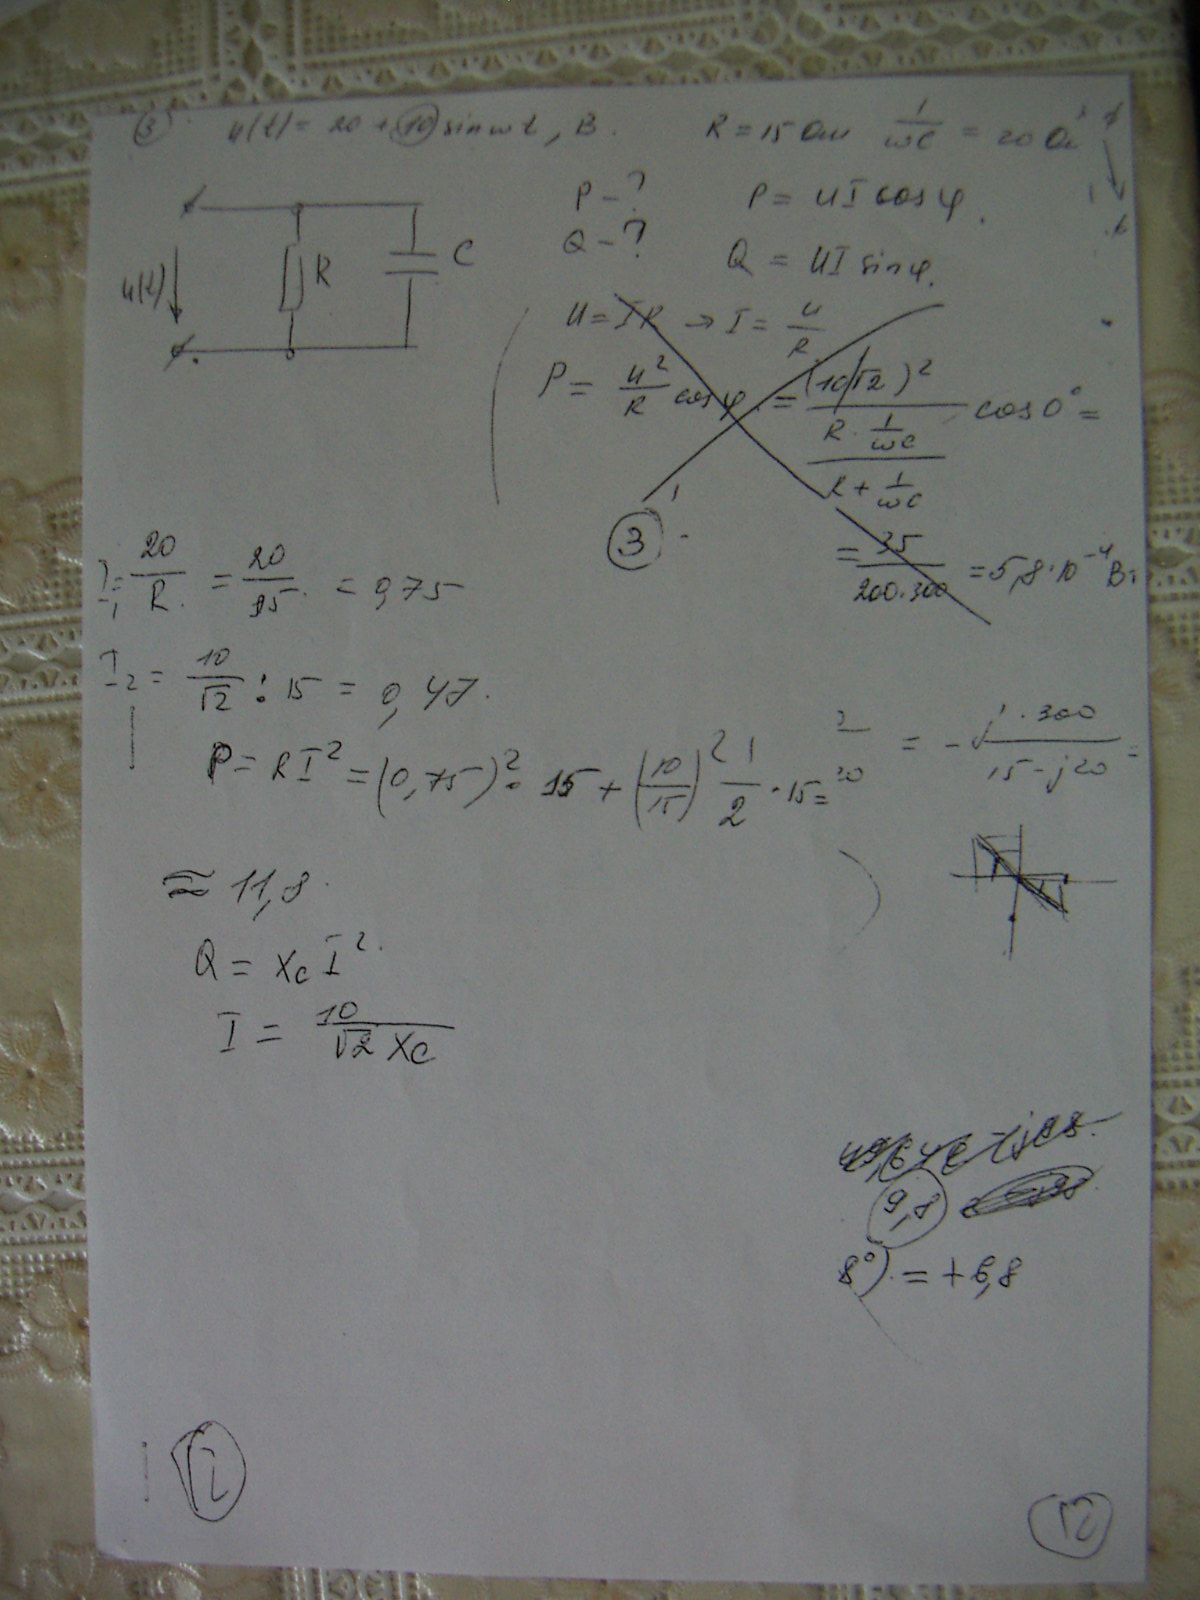 3. u(t) = 20 + 10 sin ωt, В. R = 15 Ом 1/ωC = 20 Ом
P - ? P = UI cos φ.
Q - ? Q = UI sin φ.
u(t) R C
U = IR → I = U/R
P = U²/R cos φ = (10/√2)² / (R · 1/ωC / (R + 1/ωC)) cos 0° =
3
= 35 / 200·300 = 5,8·10⁻⁴ Вт
I₁ = 20/R = 20/95 = 0,75
I₂ = 10/√2 : 15 = 0,47.
= -j·300 / 15-j20 =
P = RI² = (0,75)² · 15 + (10/15)² 1/2 · 15 =
20
≈ 11,8.
Q = Xc I².
I = 10 / √2 Xc
9,8
8°) = +6,8
12
12